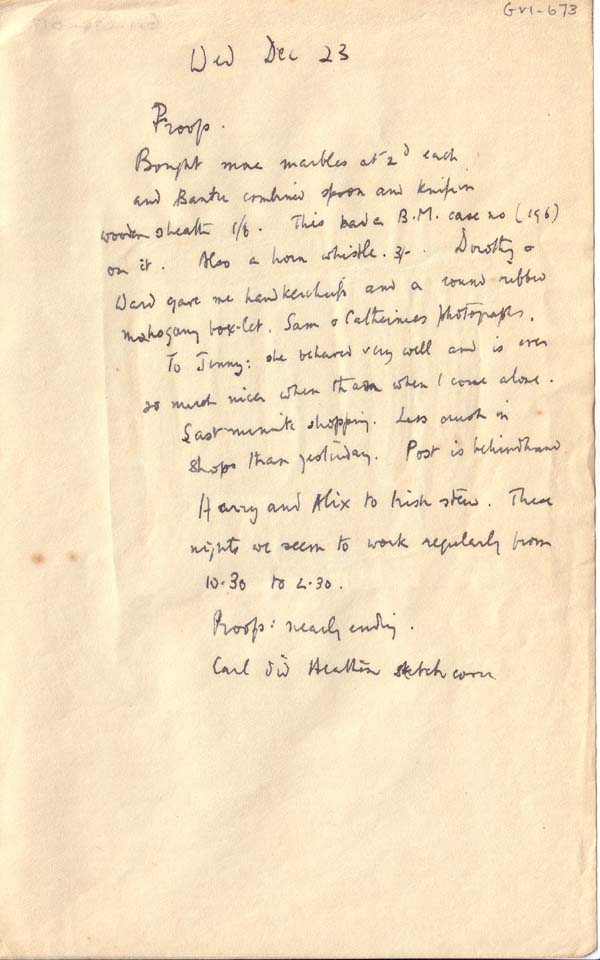 GVI-673
Wed Dec 23
Proofs.
Bought more marbles at 2d each
and Bantu combined spoon and knife in
wooden sheath 1/6. This had a B.M. case no (196)
on it. Also a horn whistle. 3/-. Dorothy &
Ward gave me handkerchiefs and a round ribbed
mahogany box-let. Sam & Catherine's photographs.
To Jenny: she behaved very well and is ever
so much nicer when than when I come alone.
Last minute shopping. Less crush in
shops than yesterday. Post is behindhand
Harry and Alix to Irish stew. These
nights we seem to work regularly from
10.30 to 2.30.
Proofs: nearly ending.
Carl did Heathen sketch cover